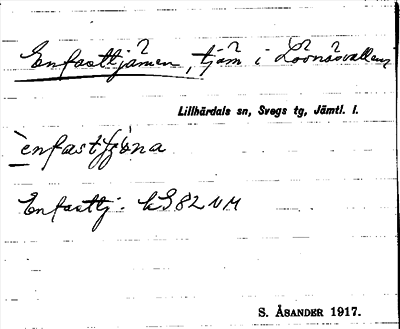 Enfasttjärnen, tjärn i Lövnäsvallen
Lillhärdals sn, Svegs tg, Jämtl. l.
ènfasttjøna
Enfasttj. kS 82 NM
S. ÅSANDER 1917.